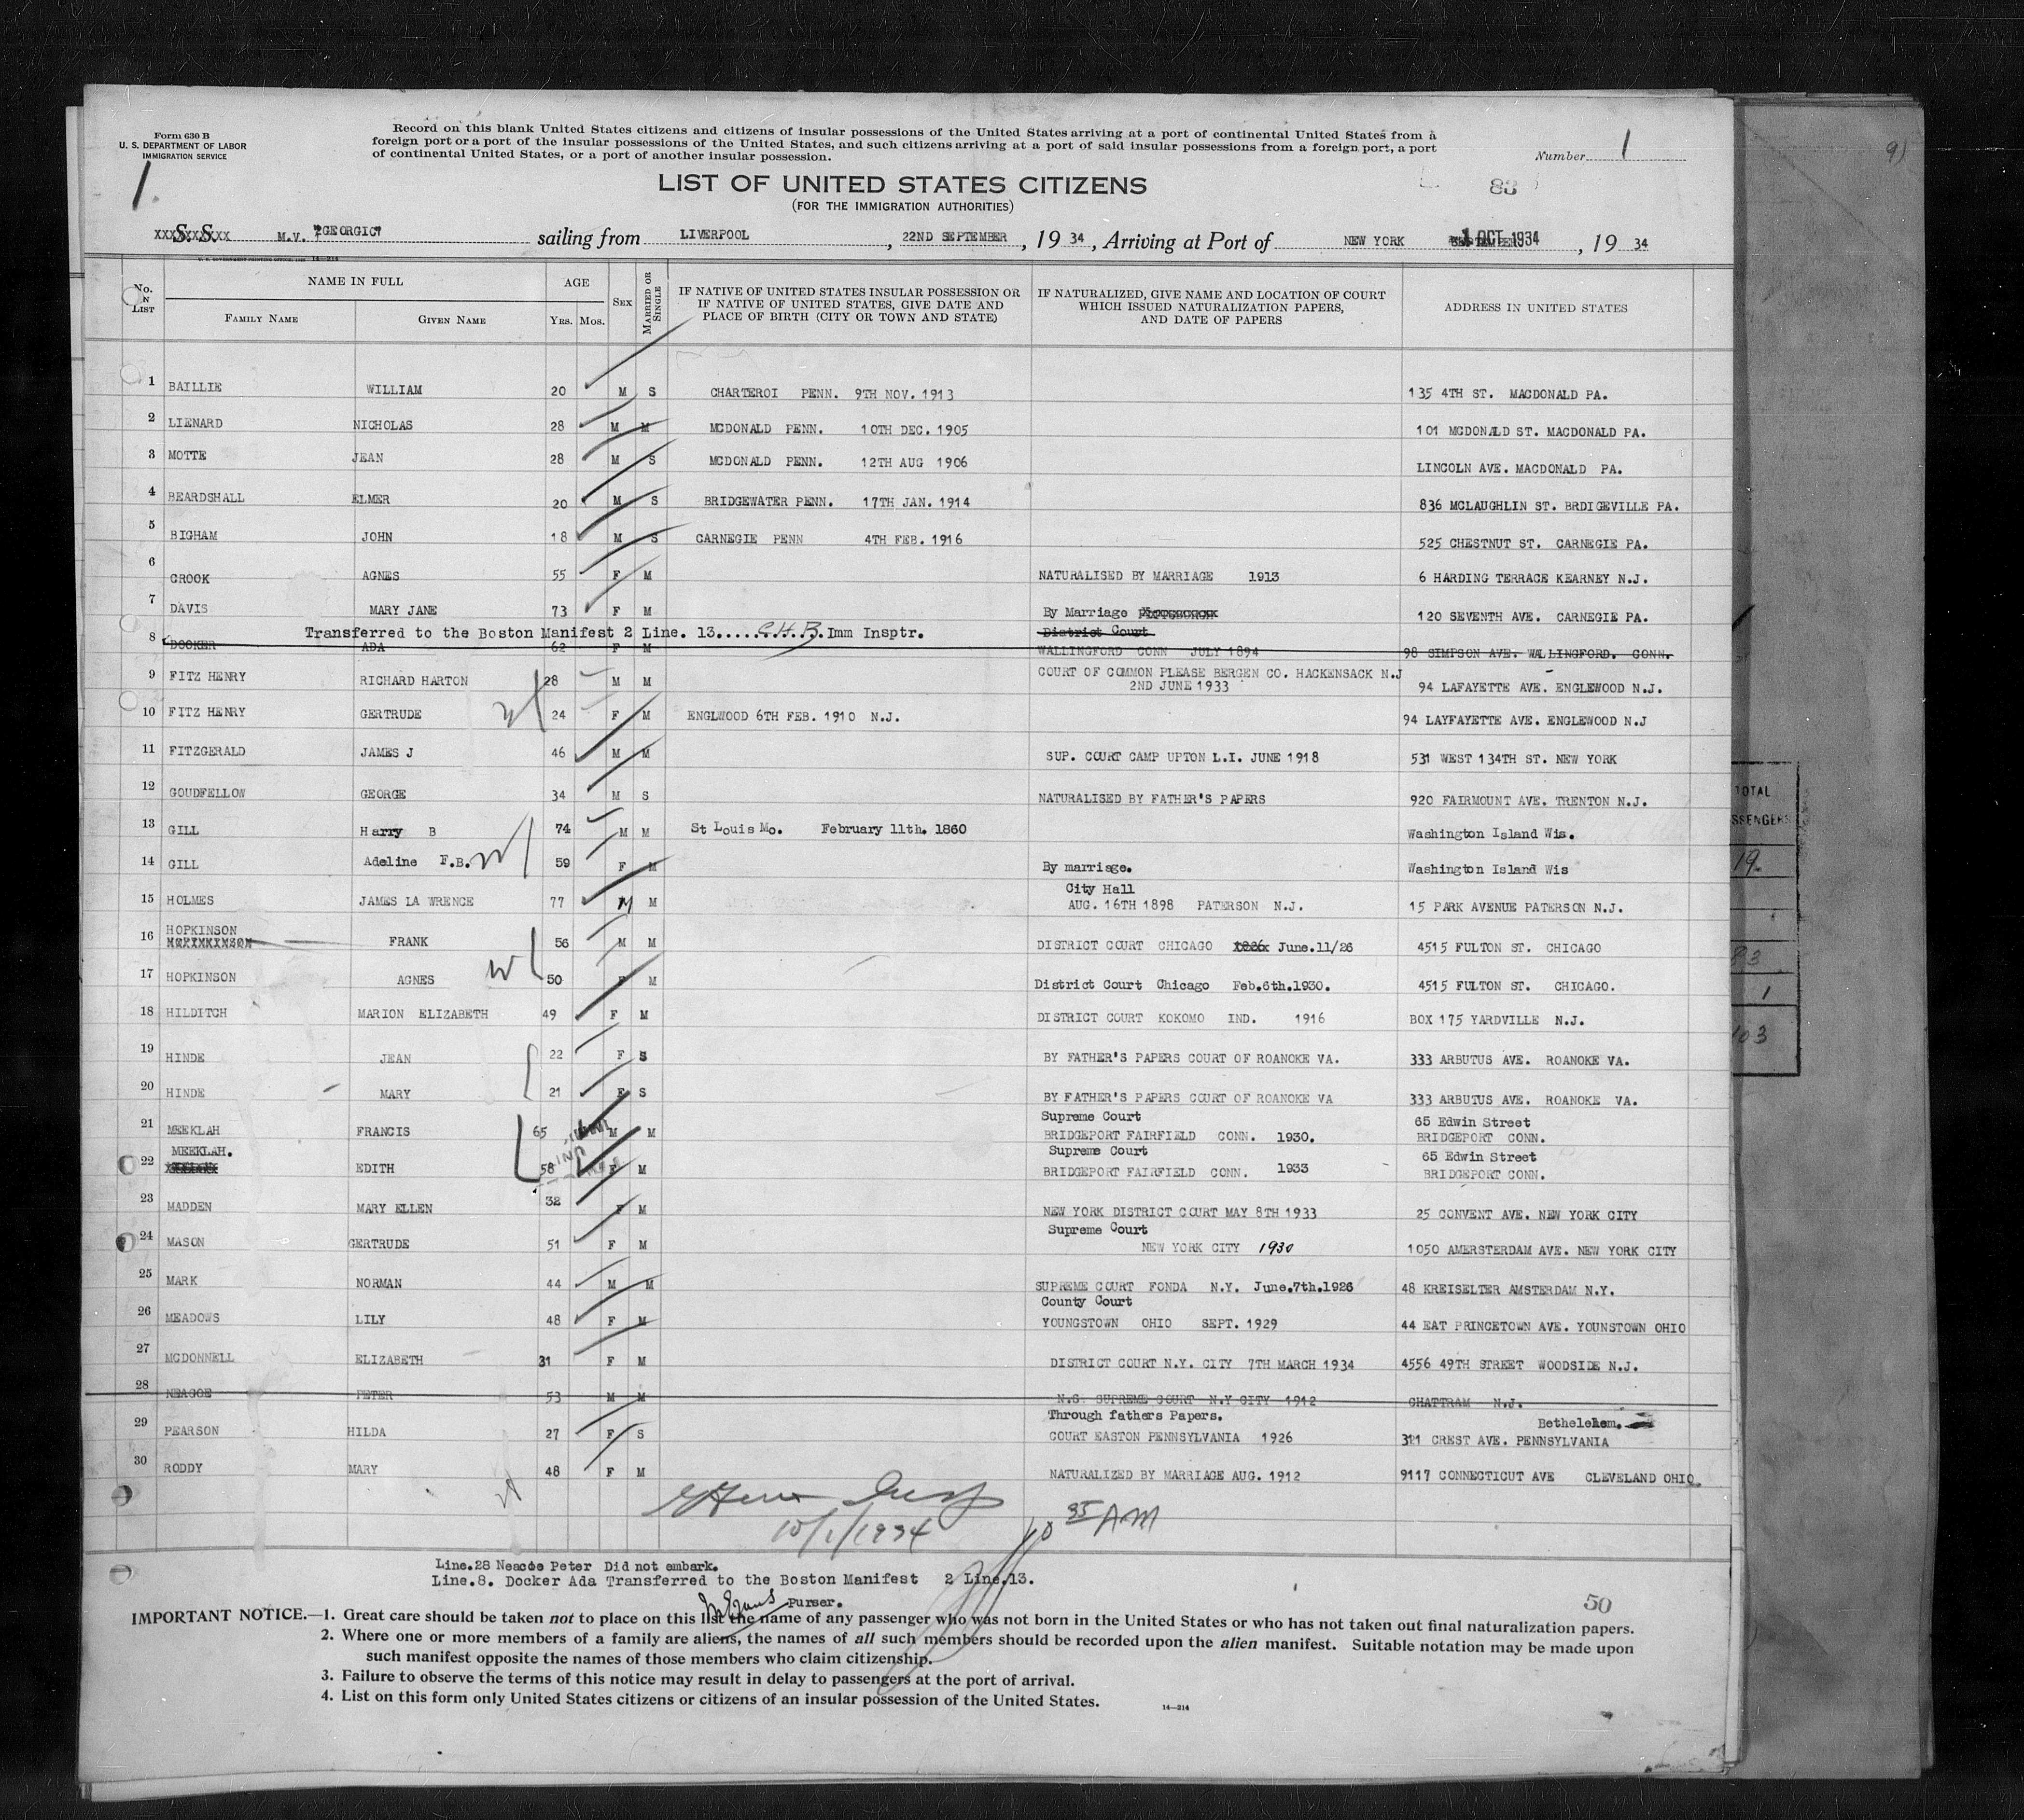 Form 630 B
U. S. DEPARTMENT OF LABOR
IMMIGRATION SERVICE
1.
Record on this blank United States citizens and citizens of insular possessions of the United States arriving at a port of continental United States from a
foreign port or a port of the insular possessions of the United States, and such citizens arriving at a port of said insular possessions from a foreign port, a port
of continental United States, or a port of another insular possession.
Number 1
9)
LIST OF UNITED STATES CITIZENS
83
(FOR THE IMMIGRATION AUTHORITIES)
S. S. M.V. "GEORGIC" sailing from LIVERPOOL, 22ND SEPTEMBER, 1934, Arriving at Port of NEW YORK 1 OCT 1934, 1934
No. IN LIST NAME IN FULL AGE SEX MARRIED OR SINGLE IF NATIVE OF UNITED STATES INSULAR POSSESSION OR IF NATIVE OF UNITED STATES, GIVE DATE AND PLACE OF BIRTH (CITY OR TOWN AND STATE) IF NATURALIZED, GIVE NAME AND LOCATION OF COURT WHICH ISSUED NATURALIZATION PAPERS, AND DATE OF PAPERS ADDRESS IN UNITED STATES
FAMILY NAME GIVEN NAME YRS. MOS.
1 BAILLIE WILLIAM 20 M S CHARTEROI PENN. 9TH NOV. 1913 135 4TH ST. MACDONALD PA.
2 LIENARD NICHOLAS 28 M M MCDONALD PENN. 10TH DEC. 1905 101 MCDONALD ST. MACDONALD PA.
3 MOTTE JEAN 28 M S MCDONALD PENN. 12TH AUG 1906 LINCOLN AVE. MACDONALD PA.
4 BEARDSHALL ELMER 20 M S BRIDGEWATER PENN. 17TH JAN. 1914 836 MCLAUGHLIN ST. BRDIGEVILLE PA.
5 BIGHAM JOHN 18 M S CARNEGIE PENN 4TH FEB. 1916 525 CHESTNUT ST. CARNEGIE PA.
6 CROOK AGNES 55 F M NATURALISED BY MARRIAGE 1913 6 HARDING TERRACE KEARNEY N.J.
7 DAVIS MARY JANE 73 F M By Marriage 120 SEVENTH AVE. CARNEGIE PA.
Transferred to the Boston Manifest 2 Line. 13......C.H.B. Imm Insptr. District Court
8 DOCKER ADA 62 F M WALLINGFORD CONN JULY 1894 98 SIMPSON AVE. WALLINGFORD. CONN.
9 FITZ HENRY RICHARD HARTON 28 M M COURT OF COMMON PLEASE BERGEN CO. HACKENSACK N.J
2ND JUNE 1933 94 LAFAYETTE AVE. ENGLEWOOD N.J.
10 FITZ HENRY GERTRUDE 24 F M ENGLWOOD 6TH FEB. 1910 N.J. 94 LAYFAYETTE AVE. ENGLEWOOD N.J
11 FITZGERALD JAMES J 46 M M SUP. COURT CAMP UPTON L.I. JUNE 1918 531 WEST 134TH ST. NEW YORK
12 GOUDFELLOW GEORGE 34 M S NATURALISED BY FATHER'S PAPERS 920 FAIRMOUNT AVE. TRENTON N.J.
13 GILL Harry B 74 M M St Louis Mo. February 11th. 1860 Washington Island Wis.
14 GILL Adeline F.B. 59 F M By marriage. Washington Island Wis
City Hall
15 HOLMES JAMES LA WRENCE 77 M M AUG. 16TH 1898 PATERSON N.J. 15 PARK AVENUE PATERSON N.J.
HOPKINSON
16 FRANK 56 M M DISTRICT COURT CHICAGO June.11/26 4515 FULTON ST. CHICAGO
17 HOPKINSON AGNES 50 F M District Court Chicago Feb.6th.1930. 4515 FULTON ST. CHICAGO.
18 HILDITCH MARION ELIZABETH 49 F M DISTRICT COURT KOKOMO IND. 1916 BOX 175 YARDVILLE N.J.
19 HINDE JEAN 22 F S BY FATHER'S PAPERS COURT OF ROANOKE VA. 333 ARBUTUS AVE. ROANOKE VA.
20 HINDE MARY 21 F S BY FATHER'S PAPERS COURT OF ROANOKE VA 333 ARBUTUS AVE. ROANOKE VA.
Supreme Court 65 Edwin Street
21 MEEKLAH FRANCIS 65 M M BRIDGEPORT FAIRFIELD CONN. 1930. BRIDGEPORT CONN.
MEEKLAH. Supreme Court 65 Edwin Street
22 EDITH 58 F M BRIDGEPORT FAIRFIELD CONN. 1933 BRIDGEPORT CONN.
23 MADDEN MARY ELLEN 32 F M NEW YORK DISTRICT COURT MAY 8TH 1933 25 CONVENT AVE. NEW YORK CITY
Supreme Court
24 MASON GERTRUDE 51 F M NEW YORK CITY 1930 1050 AMERSTERDAM AVE. NEW YORK CITY
25 MARK NORMAN 44 M M SUPREME COURT FONDA N.Y. June.7th.1926 48 KREISELTER AMSTERDAM N.Y.
County Court
26 MEADOWS LILY 48 F M YOUNGSTOWN OHIO SEPT. 1929 44 EAT PRINCETOWN AVE. YOUNSTOWN OHIO
27 MCDONNELL ELIZABETH 31 F M DISTRICT COURT N.Y. CITY 7TH MARCH 1934 4556 49TH STREET WOODSIDE N.J.
28 NEACOE PETER 53 M M SUPREME COURT N.Y CITY 1912 CHATTRAM N.J.
Through fathers Papers. Bethelehem.
29 PEARSON HILDA 27 F S COURT EASTON PENNSYLVANIA 1926 321 CREST AVE. PENNSYLVANIA
30 RODDY MARY 48 F M NATURALIZED BY MARRIAGE AUG. 1912 9117 CONNECTICUT AVE CLEVELAND OHIO.
10/1/1934 10 35 AM
Line.28 Neacoe Peter Did not embark.
Line.8. Docker Ada Transferred to the Boston Manifest 2 Line.13.
Purser.
50
IMPORTANT NOTICE.—1. Great care should be taken not to place on this list the name of any passenger who was not born in the United States or who has not taken out final naturalization papers.
2. Where one or more members of a family are aliens, the names of all such members should be recorded upon the alien manifest. Suitable notation may be made upon
such manifest opposite the names of those members who claim citizenship.
3. Failure to observe the terms of this notice may result in delay to passengers at the port of arrival.
4. List on this form only United States citizens or citizens of an insular possession of the United States.
14—214
TOTAL
19
83
1
103